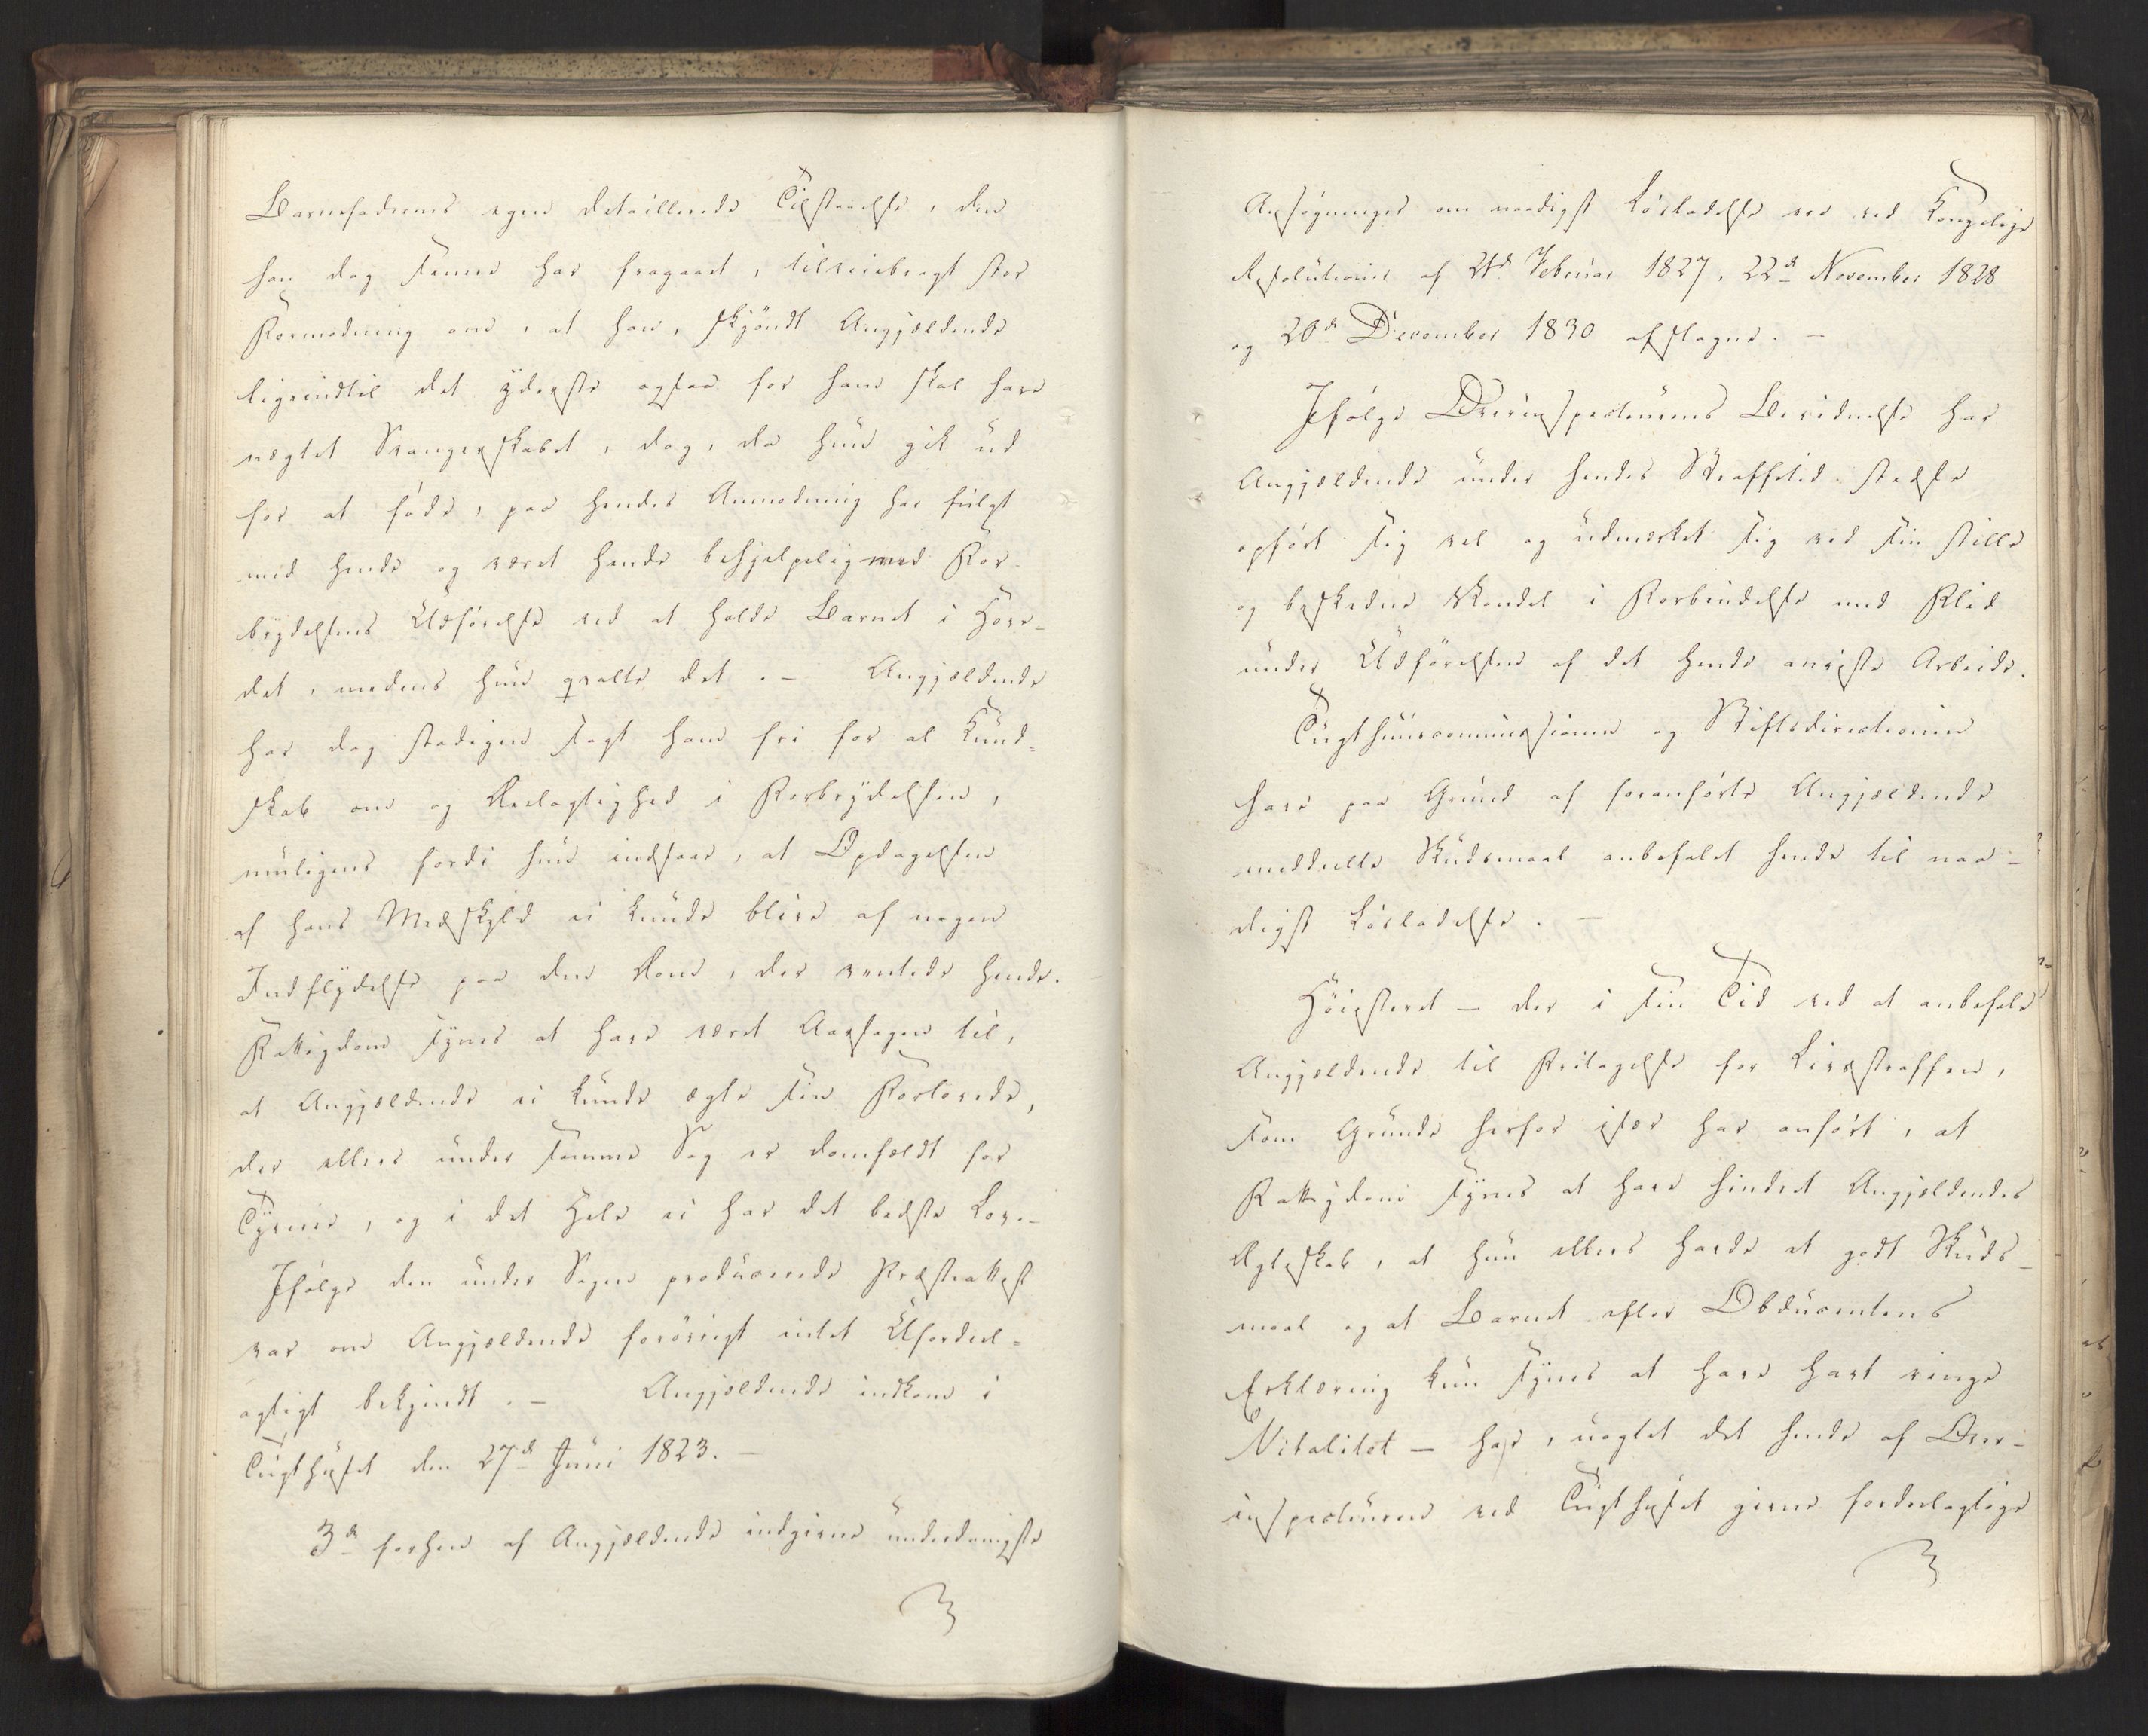 Barnefaderens egen detaillerede Tilstaaelse, den
han dog senere har fragaaet, tilveiebragt stor
Formodning om, at han, skjöndt Angjældende
ligeindtil det yderste ogsaa for ham skal have
nægtet Svangerskabet, dog, da hun gik ud
for at föde, paa hendes Anmodning har fulgt
med hende og været hende behjelpelig med For-
brydelsens Udförelse ved at holde Barnet i Hove-
det, medens hun qvalte det. - Angjældende
har dog stadigen sagt ham fri for al Kund-
skab om og Deelagtighed i Forbrydelsen,
muligens fordi hun indsaae, at Opdagelsen
af hans Medskyld ei kunde blive af nogen
Indflydelse paa den Dom, der ventede hende.
Fattigdom synes at have været Aarsagen til,
at Angjældende ei kunde ægte sin Forlovede,
der ellers under samme Sag er domfældt for
Tyverie, og i det Hele ei har det bedste Lov. -
Ifölge den under Sagen producerede Præsteattest
var om Angjældende forövrigt intet Ufordeel-
agtigt bekjendt. - Angjældende indkom i
Tugthuset den 27de Juni 1823. -
3de forhen af Angjældende indgivne underdanigste
Ansögninger om naadigst Lösladelse ere ved Kongelige
Resolutioner af 21de Februar 1827, 22de November 1828
og 20de December 1830 afslagne. -
Ifölge Overinspecteurens Beretning har
Angjældende under hendes Straffetid stedse
opfört sig vel og udmærket sig ved sin stille
og beskedne Vandel i Forbindelse med Flid
under Udförelsen af det hende anviste Arbeide.
Tugthuuscommissionen og Stiftsdirectionen
have paa Grund af foranförte Angjældende
meddeelte Skudsmaal anbefalet hende til naa-
digst Lösladelse. -
Höiesteret - der i sin Tid ved at anbefale
Angjældende til Fritagelse for Livsstraffen,
som Grunde herfor især har anfört, at
Fattigdom synes at have hindret Angjældendes
Ægteskab, at hun ellers havde et godt Skuds-
maal og at Barnet efter Obducentens
Erklæring kun synes at have havt ringe
Vitalitet - har, uagtet det hende af Over-
inspecteuren ved Tugthuset givne fordeelagtige